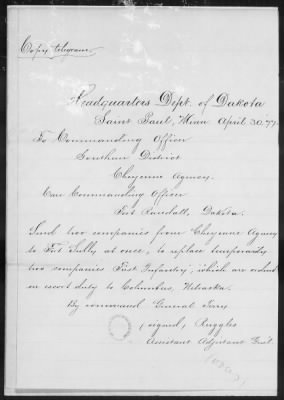 Copy telegram.
Headquarters Dept. of Dakota
Saint Paul, Minn April 30. 77.
To Commanding Officer
Southern District
Cheyenne Agency.
Care Commanding Officer
Fort Randall, Dakota.
Send two companies from Cheyenne Agency
to Fort Sully at once, to replace temporarily
two companies First Infantry, which are ordered
on escort duty to Columbus, Nebraska.
By command General Terry
(signed) Ruggles
Assistant Adjutant Genl.